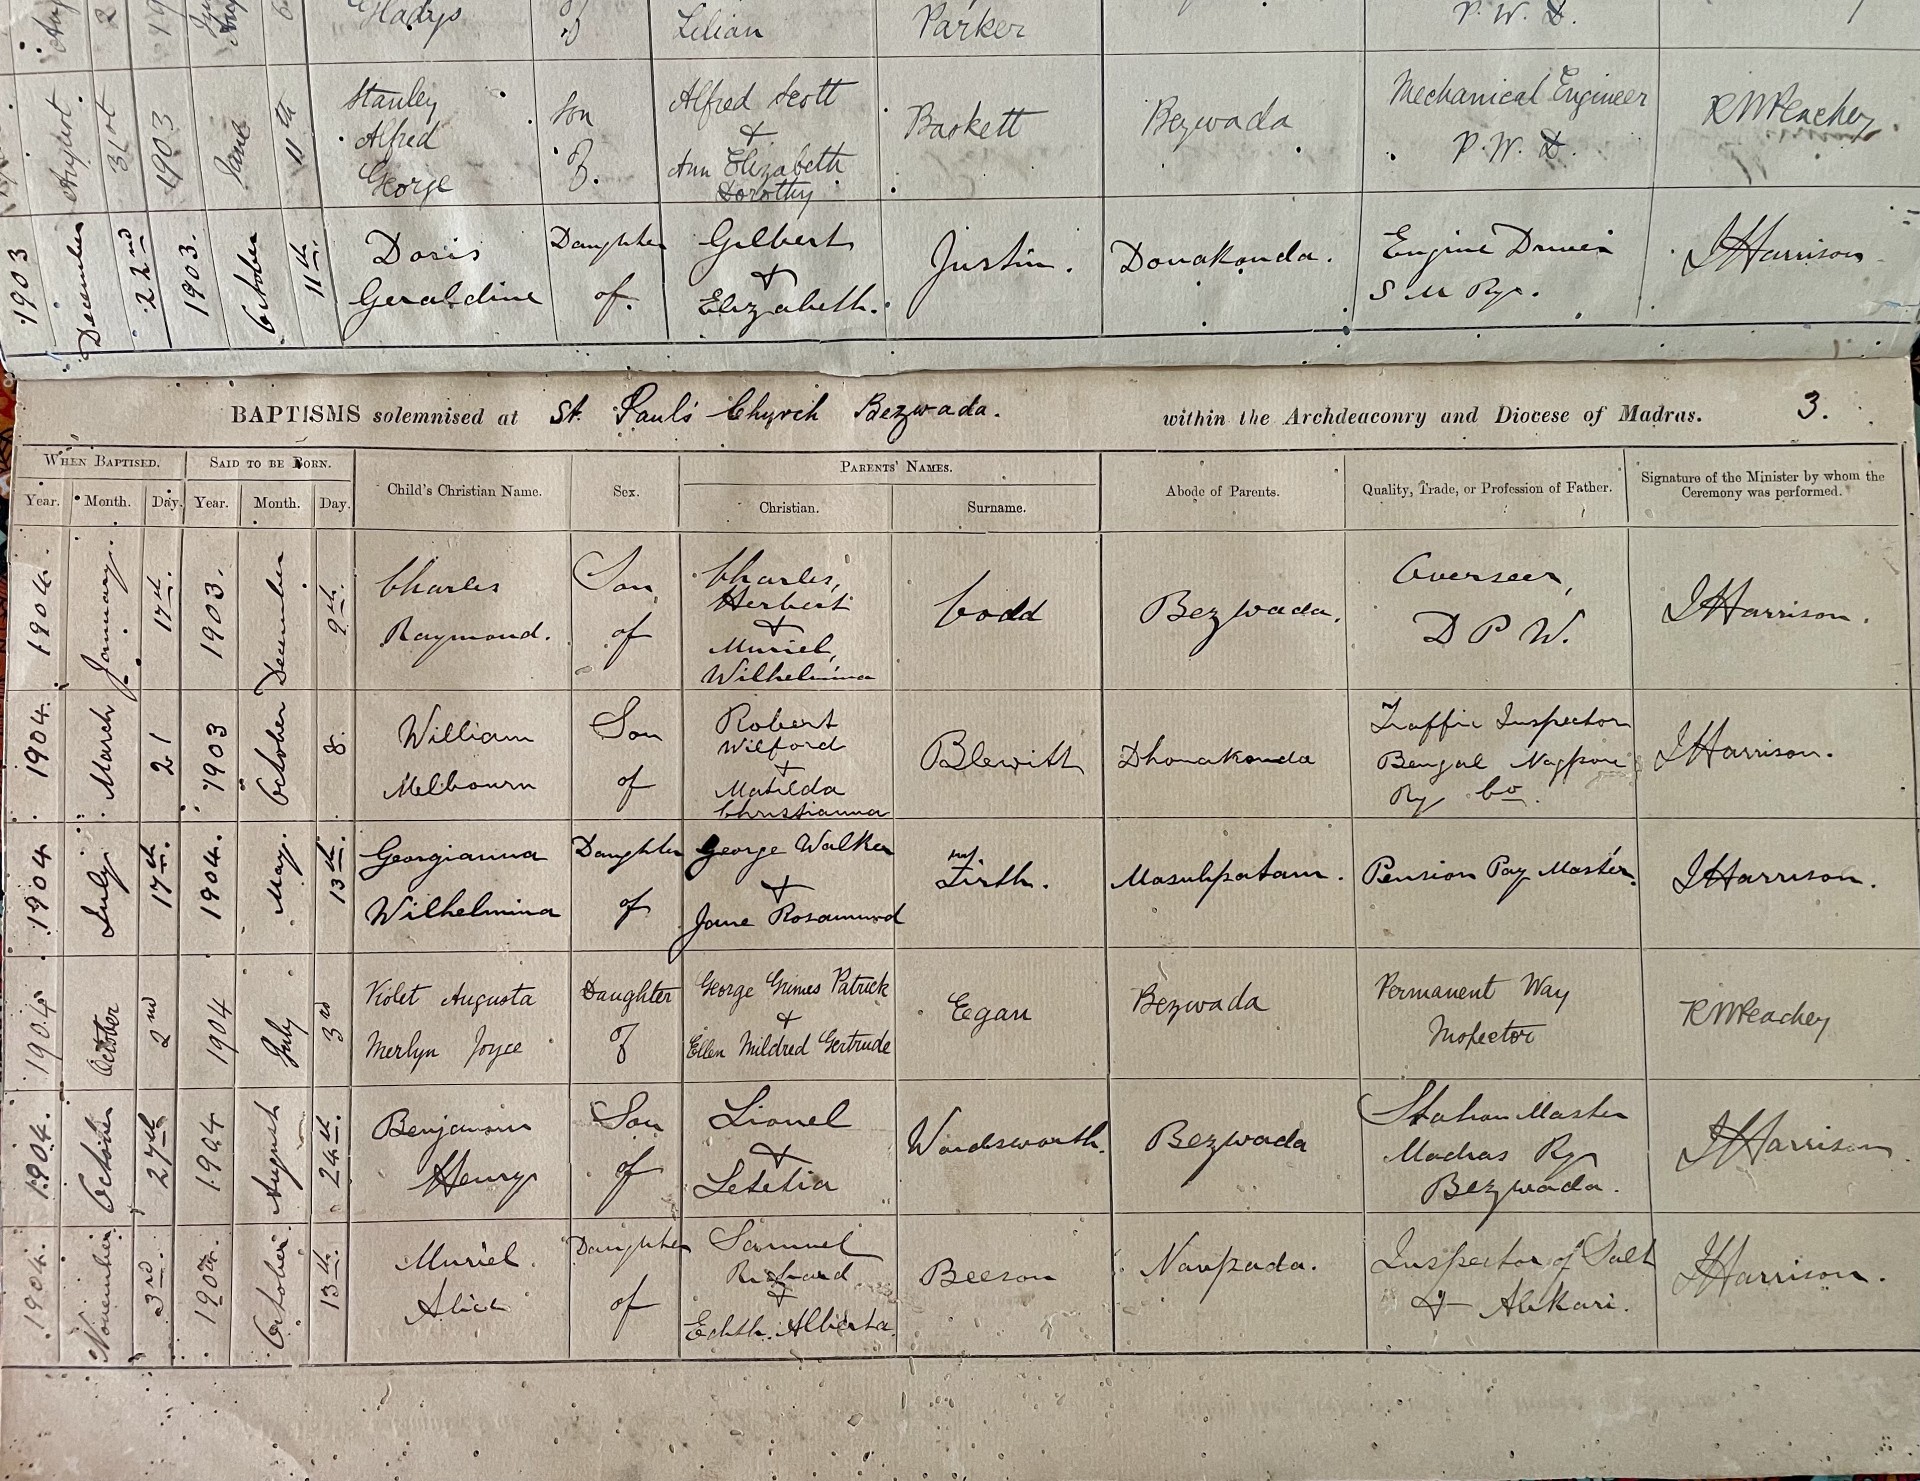 Gladys Lilian Parker P. W. D.
August 31st 1903 June 11th Stanley Alfred George Son of Alfred Scott + Ann Elizabeth Dorothy Baskett Bezwada Mechanical Engineer P. W. D. R W Peachey
1903 December 22nd 1903. October 11th. Doris Geraldine Daughter of. Gilbert + Elizabeth. Justin. Donakonda. Engine Driver S M Ry. J Harrison
BAPTISMS solemnised at St. Paul's Church Bezwada. within the Archdeaconry and Diocese of Madras. 3.
WHEN BAPTISED. SAID TO BE BORN. Child's Christian Name. Sex. PARENTS' NAMES. Abode of Parents. Quality, Trade, or Profession of Father. Signature of the Minister by whom the Ceremony was performed.
Year. Month. Day. Year. Month. Day. Christian. Surname.
1904. January. 17th. 1903. December 9th. Charles Raymond. Son of Charles, Herbert + Muriel, Wilhelmina Codd Bezwada. Overseer, D P W. J Harrison.
1904. March 21 1903 October 8. William Melbourn Son of Robert Wilford + Matilda Christianna Blewitt Dhonakonda Traffic Inspector Bengal Nagpore Ry Co. J Harrison.
1904 July 17th. 1904. May. 13th. Georgianna Wilhelmina Daughter of George Walker + Jane Rosamund Firth. Masulipatam. Pension Pay Master. J Harrison.
1904 October 2nd 1904 July 3rd Violet Augusta Merlyn Joyce Daughter of George Grimes Patrick + Ellen Mildred Gertrude Egan Bezwada Permanent Way Inspector R W Peachey
1904. October 27th 1904 August 24th. Benjamin Henry Son of Lionel + Letetia Wordsworth. Bezwada Station Master Madras Ry Bezwada. J Harrison.
1904. November. 3rd. 1904. October. 13th. Muriel Alice Daughter of Samuel Richard + Edith. Alberta. Beeson Naupada. Inspector of Salt + Abkari. J Harrison.